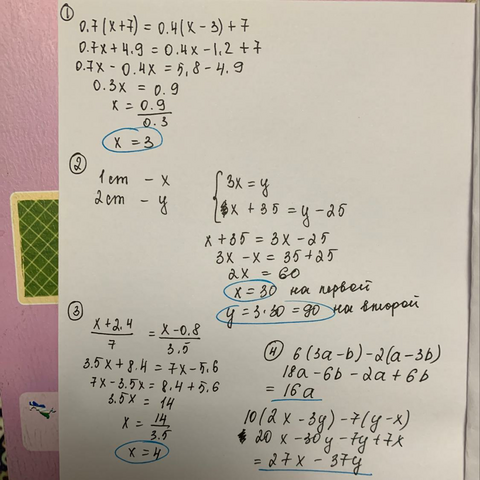 ①
0.7(x+7) = 0.4(x-3)+7
0.7x+4.9 = 0.4x-1,2+7
0.7x - 0.4x = 5,8-4.9
0.3x = 0.9
x = 0.9/0.3
x = 3
②
1 cт - x
2 cт - y
{ 3x = y
x + 35 = y - 25
x+35 = 3x-25
3x - x = 35+25
2x = 60
x = 30 на первой
y = 3·30 = 90 на второй
③
x+2,4/7 = x-0.8/3.5
3.5x+8.4 = 7x-5,6
7x-3.5x = 8.4+5,6
3.5x = 14
x = 14/3.5
x = 4
④ 6(3a-b)-2(a-3b)
18a-6b-2a+6b
= 16a
10(2x-3y)-7(y-x)
20x-30y-7y+7x
= 27x-37y